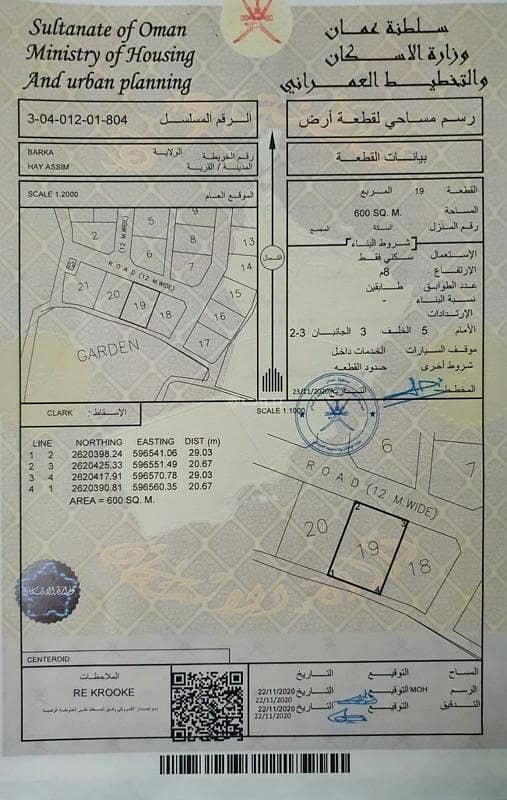 Sultanate of Oman
Ministry of Housing
And urban planning
سلطنة عمان
وزارة الاسكان
والتخطيط العمراني
3-04-012-01-804 الرقم المسلسل
رسم مساحي لقطعة أرض
BARKA الولاية رقم الخريطة
HAY ASSIM المدينة / القرية
بيانات القطعة
SCALE 1:2000 الموقع العام
القطعة 19 المربع
المساحة 600 SQ. M.
رقم المنزل السكة المجمع
شروط البناء
الإستعمال سكني فقط
الإرتفاع 8م
عدد الطوابق طابقين
نسبة البناء -
الإرتدادات
الأمام 5 الخلف 3 الجانبان 3-2
موقف السيارات الخدمات داخل
شروط أخرى حدود القطعه
المخطط التاريخ 23/11/2020
الشمال
2
(12 M.WIDE)
5
6
7
8
9
13
14
15
16
17
18
19
20
21
ROAD (12 M.WIDE)
GARDEN
CLARK الإسقاط :
SCALE 1:1000
LINE NORTHING EASTING DIST (m)
1 2 2620398.24 596541.06 29.03
2 3 2620425.33 596551.49 20.67
3 4 2620417.91 596570.78 29.03
4 1 2620390.81 596560.35 20.67
AREA = 600 SQ. M.
6
7
ROAD (12 M.WIDE)
20
19
18
2
3
1
4
وزارة الإسكان
CENTEROID
الملاحظات
RE KROOKE
المساح التوقيع التاريخ
الرسم MOH التوقيع التاريخ 22/11/2020
22/11/2020
التدقيق التوقيع التاريخ 22/11/2020
22/11/2020